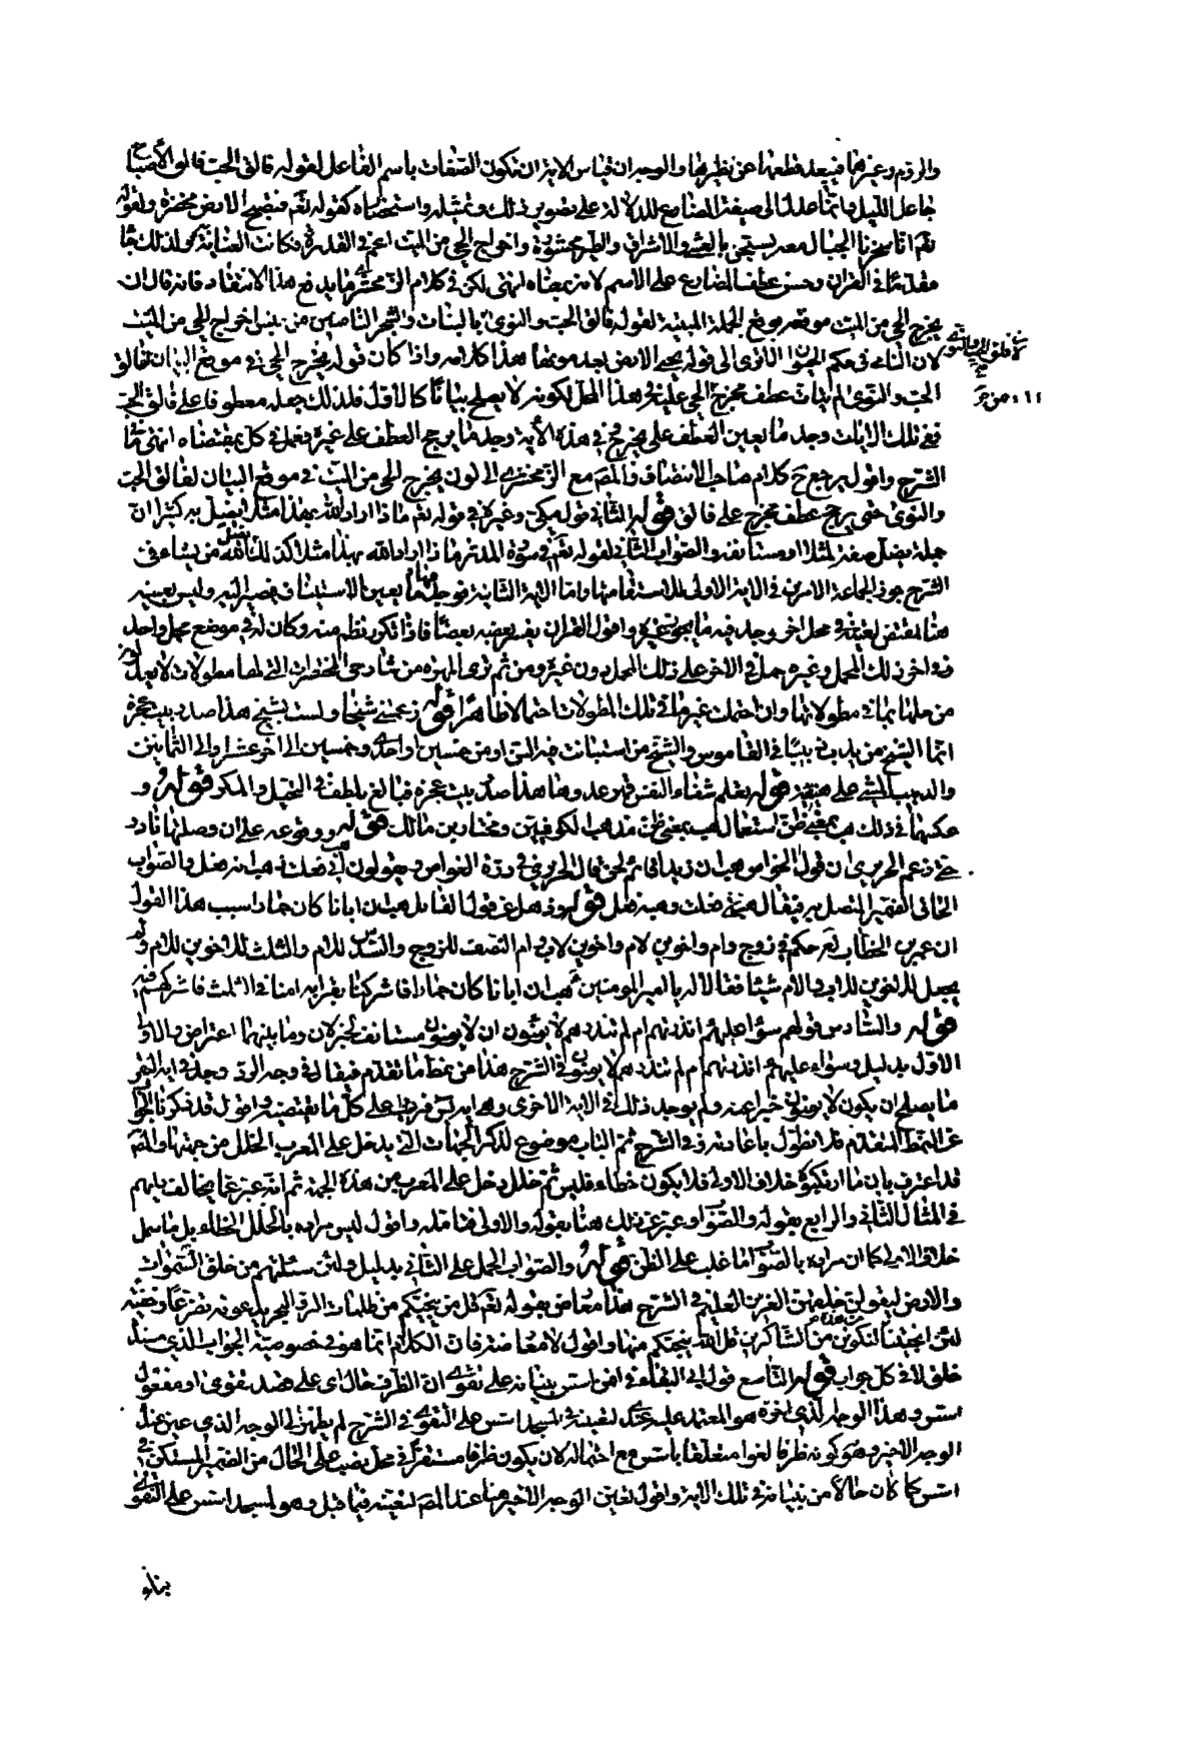 والروم وغيرها فيبعد قطعها عن نظيرها والوجه ان قياس الاية ان تكون الصفات باسم الفاعل لقوله فالق الحب فالق الأصباح
جاعل الليل وانما عدل الى صيغة المضارع للدلالة على تصوير ذلك وتمثيله واستحضاره كقوله تعم فتصبح الارض مخضرة ولقوله
تعم انا سخرنا الجبال معه يسبحن بالعشي والاشراق والطير محشورة واخراج الحي من الميت اعم في القدرة فكانت العناية به ولذلك جا
مقدما في القران وحسن عطف المضارع على الاسم لانه بمعناه انتهى لكن في كلام الزمخشري ما يدفع هذا الانتقاد فانه قال ان
يخرج الحي من الميت موقعه موقع الجملة المبينة لقوله فالق الحب والنوى بالنبات والشجر الناميين من جنس اخراج الحي من الميت
لان النامي في حكم الحيوان الا ترى الى قوله يحيي الارض بعد موتها هذا كلامه واذا كان قوله يخرج الحي في موضع البيان لفالق
الحب والنوى لم يتات عطف مخرج الحي عليه في هذا المحل لكونه لا يصلح بيانا كالاول فلذلك جعله معطوفا على فالق الحب
ففي تلك الايات وجد ما يعين العطف على يخرج وفي هذه الأية وجد ما يرجح العطف على غيره فعمل في كل بمقتضاه انتهى ما في
الشرح واقول يرجع ح كلام صاحب الانتصاف والمصم مع الزمخشري الى كون يخرج الحي من الميت في موضع البيان لفالق الحب
والنوى حتى يرجح عطف مخرج على فالق قوله الثانى قوله مكى وغيره في قوله تعم ماذا اراد الله بهذا مثلا يضل به كثيرا ان
جملة يضل صفة لمثلا او مستانفة والصواب الثانى لقوله تعم في سورة المدثر ماذا اراد الله بهذا مثلا كذلك يضل الله من يشاء في
الشرح جوز الجماعة الامرين في الاية الاولى للاستقامتهما واما الاية الثانية فوجد فيها ما يعين الاستيناف فيصير اليه وليس تعيينه
هنا مقتض لتعينه في محل اخر وجد فيه ما يجوز غيره واقول القران يفسر بعضه بعضا فاذا تكرر نظم منه وكان له في موضع محمل واحد
وفي اخر ذلك المحمل وغيره حمل في الاخر على ذلك المحمل دون غيره ومن ثم ترى المهرة من شارحى المختصرات التي لها مطولات لا يعدلون
من حملها بما في مطولاتها وان احتملت غير ما في تلك المطولات احتمالا ظاهرا قوله زعمتني شيخا ولست بشيخ هذا صدر بيت عجزه
انما الشيخ من يدب دبيبا في القاموس والشيخ من استبانت فيه السن او من خمسين او احدى وخمسين الى اخر عشر او الى الثمانين
والدبيب المشي على هينة قوله تعلم شفاء النفس قهر عدوها هذا صدر بيت عجزه فبالغ بلطف في التحيل والمكر قوله و
عكسهما في ذلك هب بمعنى ظن استعمال هب بمعنى ظن مذهب الكوفيين ومختار بن مالك قوله ووقوعه على ان وصلتها نادر
حتى زعم الحريرى ان قول الخواص هب ان زيدا قائم لحن قال الحريري في درة الغواص ويقولون هب انى فعلت وهب انه فعل والصواب
الحاق الضمير المتصل به فيقال هبني فعلت وهبه فعل قوله وذهل عن قول القائل هب ان ابانا كان حمارا سبب هذا القول
ان عمر بن الخطاب لعم حكم في زوج وام واخوين لام واخوين لاب وام النصف للزوج والسدس للام والثلث للاخوين للام ولم
يجعل للاخوين للاب والام شيئا فقالا له يا امير المومنين هب ان ابانا كان حمارا فاشركنا بقرابة امنا في الثلث فاشركهم فيه
قوله والسادس قولهم سواء عليهم ءانذرتهم ام لم تنذرهم لا يؤمنون ان لا يؤمنون مستانف لخبر لان وما بينهما اعتراض والاولى
الاول بدليل وسواء عليهم ءانذرتهم ام لم تنذرهم لا يؤمنون في الشرح هذا من نمط ما تقدم فيقال في وجه الرد وجد في اية البقرة
ما يصلح ان يكون لا يؤمنون خبرا عنه ولم يوجد ذلك في الاية الاخرى وهي اية يس فرد على كل ما تقتضيه واقول قد ذكرنا الجواب
عن النمط المتقدم فلا نطول باعادته وفي الشرح ثم الباب موضوع لذكر الجهات التي يدخل على المعرب الخلل من جهتها والمصم
قد اعترف بان ما ارتكبوه خلاف الاولى فلا يكون خطاء فليس ثم خلل دخل على المعرب من هذه الجهة ثم انه عبر عما يخالف رايهم
في المثال الثاني والرابع بقوله والصواب وعبر عن ذلك هنا بقوله والاولى فتامله واقول ليس مراده بالخلل الخطاء بل ما يشمل
خلاف الاولى كما ان مراده بالصواب ما غلب على الظن قوله والصواب الحمل على الثانى بدليل ولئن سئلتهم من خلق السموات
والارض ليقولن خلقهن العزيز العليم في الشرح هذا معارض بقوله تعم قل من ينجيكم من ظلمات البر والبحر تدعونه تضرعا وخفية
لئن انجيتنا من هذه لنكونن من الشاكرين قل الله ينجيكم منها واقول لا معارضة فان الكلام انما هو في خصوصية الجواب الذي مبتدا
خلق لا في كل جواب قوله التاسع قول ابى البقاء في افمن اسس بنيانه على تقوى ان الظرف حال اى على قصد تقوى او مفعول
اسس وهذا الوجه الذي اخره هو المعتمد عليه عندي لتعينه في لمسجد اسس على التقوى في الشرح لم يظهر لي الوجه الذي عين عنده
الوجه الاخير وهو كونه ظرفا لغوا متعلقا باسس مع احتماله لان يكون ظرفا مستقرا في محل نصب على الحال من الضمير المستكن في
اسس كما كان حالا من بنيانه في تلك الاية واقول تعين الوجه الاخير هنا عند المصم لتعينه فيما قبل وهو لمسجد اسس على التقوى